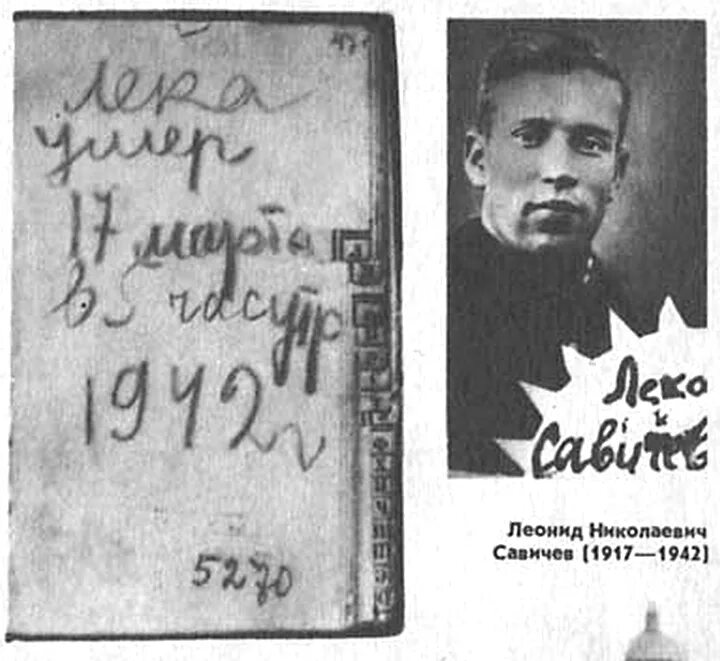 Лека
умер
17 марта
в 5 час утр
1942 г
5270
Лека
Савичев
Леонид Николаевич
Савичев (1917—1942)